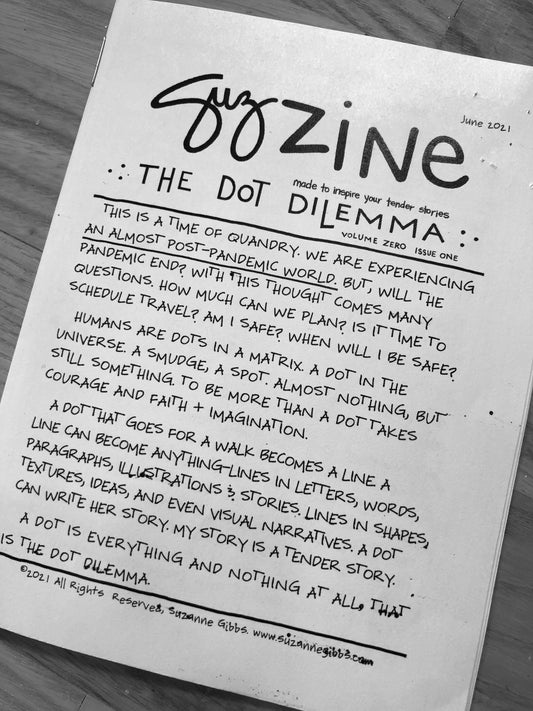 June 2021
Suz ZiNe
made to inspire your tender stories
THE DOT DILEMMA
VOLUME ZERO ISSUE ONE
THIS IS A TIME OF QUANDRY. WE ARE EXPERIENCING
AN ALMOST POST-PANDEMIC WORLD. BUT, WILL THE
PANDEMIC END? WITH THIS THOUGHT COMES MANY
QUESTIONS. HOW MUCH CAN WE PLAN? IS IT TIME TO
SCHEDULE TRAVEL? AM I SAFE? WHEN WILL I BE SAFE?
HUMANS ARE DOTS IN A MATRIX. A DOT IN THE
UNIVERSE. A SMUDGE, A SPOT. ALMOST NOTHING, BUT
STILL SOMETHING. TO BE MORE THAN A DOT TAKES
COURAGE AND FAITH + IMAGINATION.
A DOT THAT GOES FOR A WALK BECOMES A LINE. A
LINE CAN BECOME ANYTHING-LINES IN LETTERS, WORDS,
PARAGRAPHS, ILLUSTRATIONS & STORIES. LINES IN SHAPES,
TEXTURES, IDEAS, AND EVEN VISUAL NARRATIVES. A DOT
CAN WRITE HER STORY. MY STORY IS A TENDER STORY.
A DOT IS EVERYTHING AND NOTHING AT ALL, THAT
IS THE DOT DILEMMA.
©2021 All Rights Reserved, Suzanne Gibbs. www.suzannegibbs.com